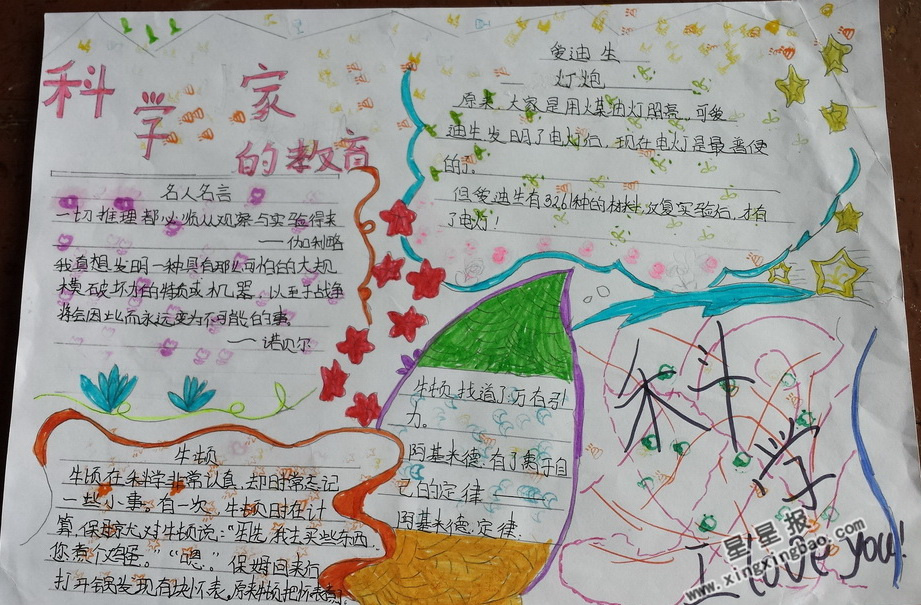 科学家
的教育
名人名言
一切推理都必须从观察与实验得来
——伽利略
我真想发明一种具有那么可怕的大规
模破坏力的特质或机器,以至于战争
将会因此而永远变为不可能的事。
——诺贝尔
爱迪生
灯炮
原来,大家是用煤油灯照亮,可爱
迪生发明了电灯后,现在电灯是最普便
的。
但爱迪生有3261种的材料,反复实验后,才有
了电灯!
牛顿
牛顿在科学非常认真,却日常忘记
一些小事。有一次,牛顿在计
算,保姆对牛顿说:“先生,我去买些东西,
您煮个鸡蛋。”“嗯。”保姆回来后
打开锅发现有块怀表。原来牛顿把怀表煮了
牛顿,找道了万有引
力。
阿基米德,有了属于自
己的定律——
阿基米德定律.
科学
I love you!
星星报
www.xingxingbao.com